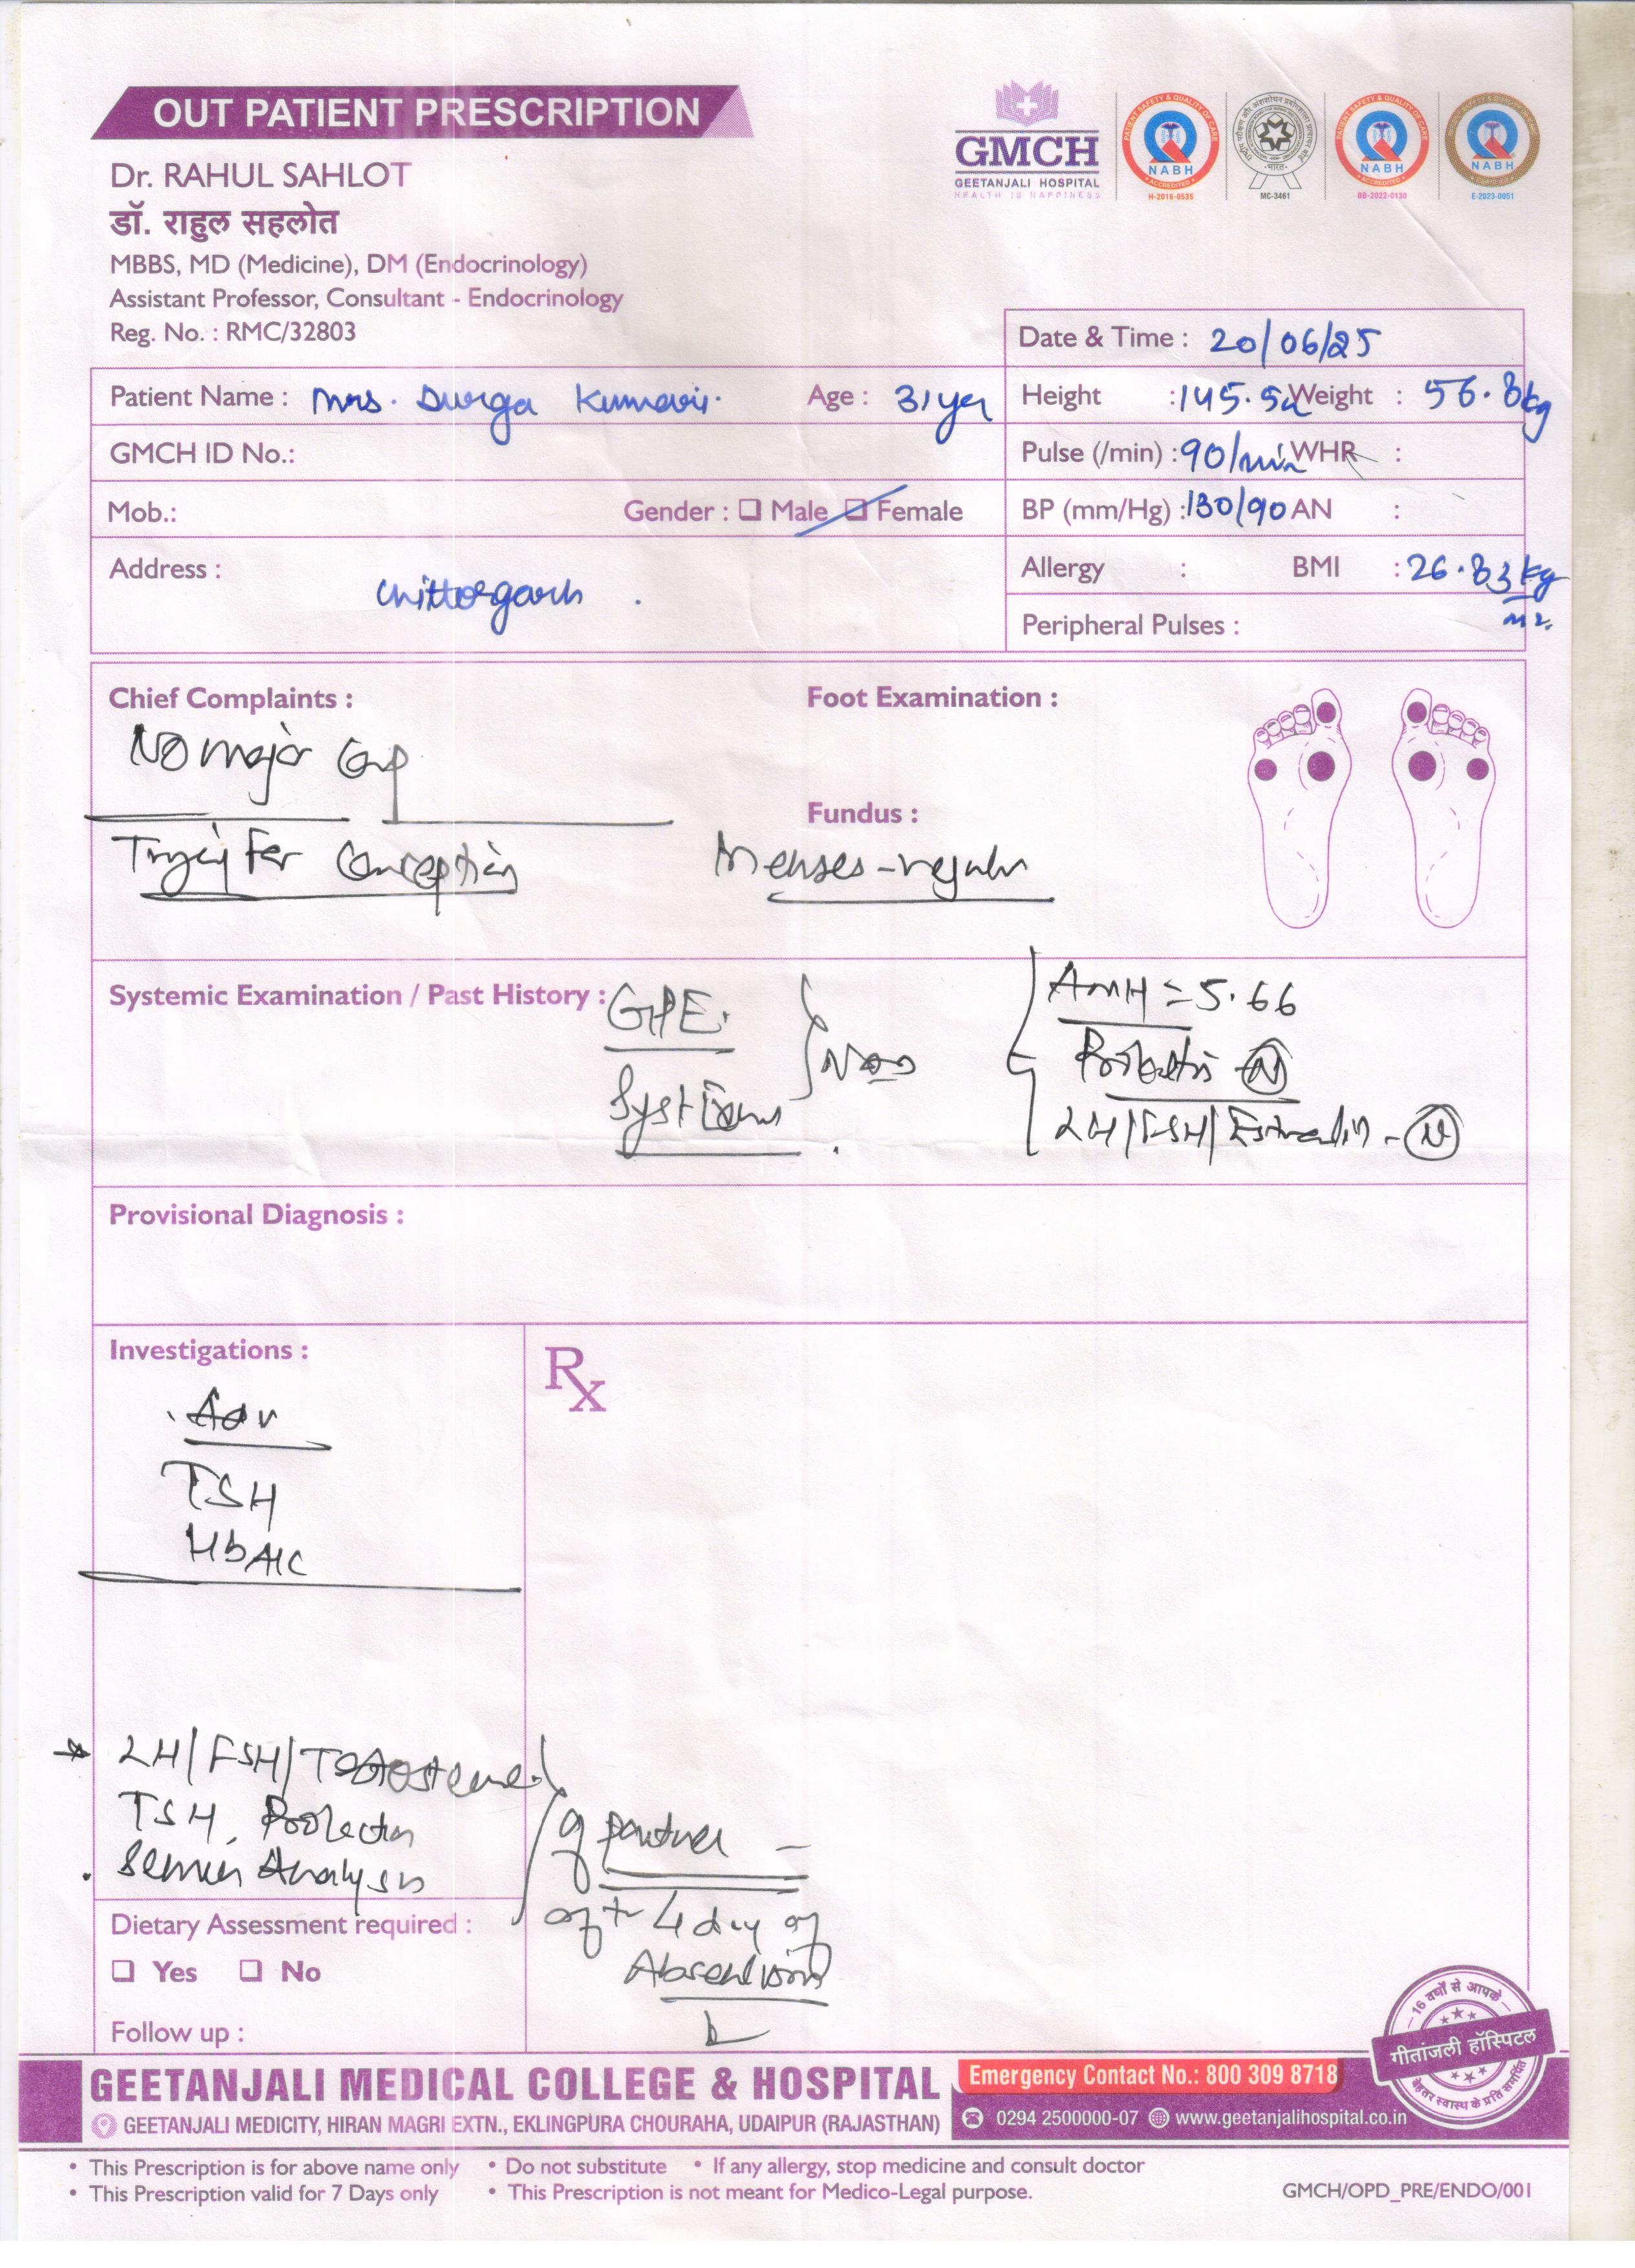 OUT PATIENT PRESCRIPTION
GMCH
GEETANJALI HOSPITAL
HEALTH IS HAPPINESS
PATIENT SAFETY & QUALITY OF CARE
NABH
ACCREDITED
H-2016-0535
MC-3461
NABH
BB-2022-0130
NABH
E-2023-0051
Dr. RAHUL SAHLOT
डॉ. राहुल सहलोत
MBBS, MD (Medicine), DM (Endocrinology)
Assistant Professor, Consultant - Endocrinology
Reg. No. : RMC/32803
Date & Time : 20/06/25
Patient Name : Mrs. Durga Kumari. Age : 31yer
Height : 145.5 Weight : 56.8kg
GMCH ID No.:
Pulse (/min) : 90/min WHR :
Mob.: Gender : Male Female
BP (mm/Hg) : 130/90 AN :
Address : Chittorgarh .
Allergy : BMI : 26.83 kg/m2.
Peripheral Pulses :
Chief Complaints : Foot Examination :
No major
Fundus :
Trying for Conception Menses - regular
Systemic Examination / Past History : GPE.
AMH = 5.66
Prolactin N
LH/FSH/ - N
Provisional Diagnosis :
Investigations : Rx
TSH
HbA1C
LH/FSH/Testosterone
TSH, Prolactin
Semen Analysis
of partner -
4 day of
Dietary Assessment required :
Yes No
Follow up :
16 वर्षों से आपके
गीतांजली हॉस्पिटल
बेहतर स्वास्थ्य के प्रति समर्पित
GEETANJALI MEDICAL COLLEGE & HOSPITAL
Emergency Contact No.: 800 309 8718
GEETANJALI MEDICITY, HIRAN MAGRI EXTN., EKLINGPURA CHOURAHA, UDAIPUR (RAJASTHAN)
0294 2500000-07 www.geetanjalihospital.co.in
• This Prescription is for above name only • Do not substitute • If any allergy, stop medicine and consult doctor
• This Prescription valid for 7 Days only • This Prescription is not meant for Medico-Legal purpose.
GMCH/OPD_PRE/ENDO/001